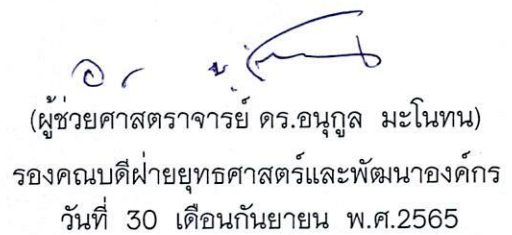 (ผู้ช่วยศาสตราจารย์ ดร.อนุกูล มะโนทน)
รองคณบดีฝ่ายยุทธศาสตร์และพัฒนาองค์กร
วันที่ 30 เดือนกันยายน พ.ศ.2565